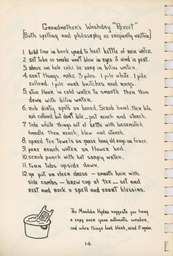 Grandmother's Washday "Receet"
(Both spelling and philosophy as originally written)
1. bild fire in back yard to heet kettle of rain water.
2. set tubs so smoke wont blow in eyes if wind is peart.
3. shave one hole cake lie soap in bilin water.
4. sort things, make 3 piles. 1 pile white. 1 pile
cullord. 1 pile work briches and rags.
5. stur flour in cold water to smooth then thin
down with bilin water.
6. rub dirty spots on board. Scrub hard. then bile.
rub cullord but dont bile, just rench and starch.
7. take white things out of kettle with broomstick
handle then rench, blew and starch.
8. spred tee towels on grass. hang old rags on fence.
9. pore rench water on flower bed.
10. scrub porch with hot soapy water.
11. turn tubs upside down.
12. go put on cleen dress - smooth hair with
side combs - brew cup of tee - set and
rest and rock a spell and count blessins.
The
suggests you hang
a copy over your automatic washer,
and when things look bleak, read it again.
14